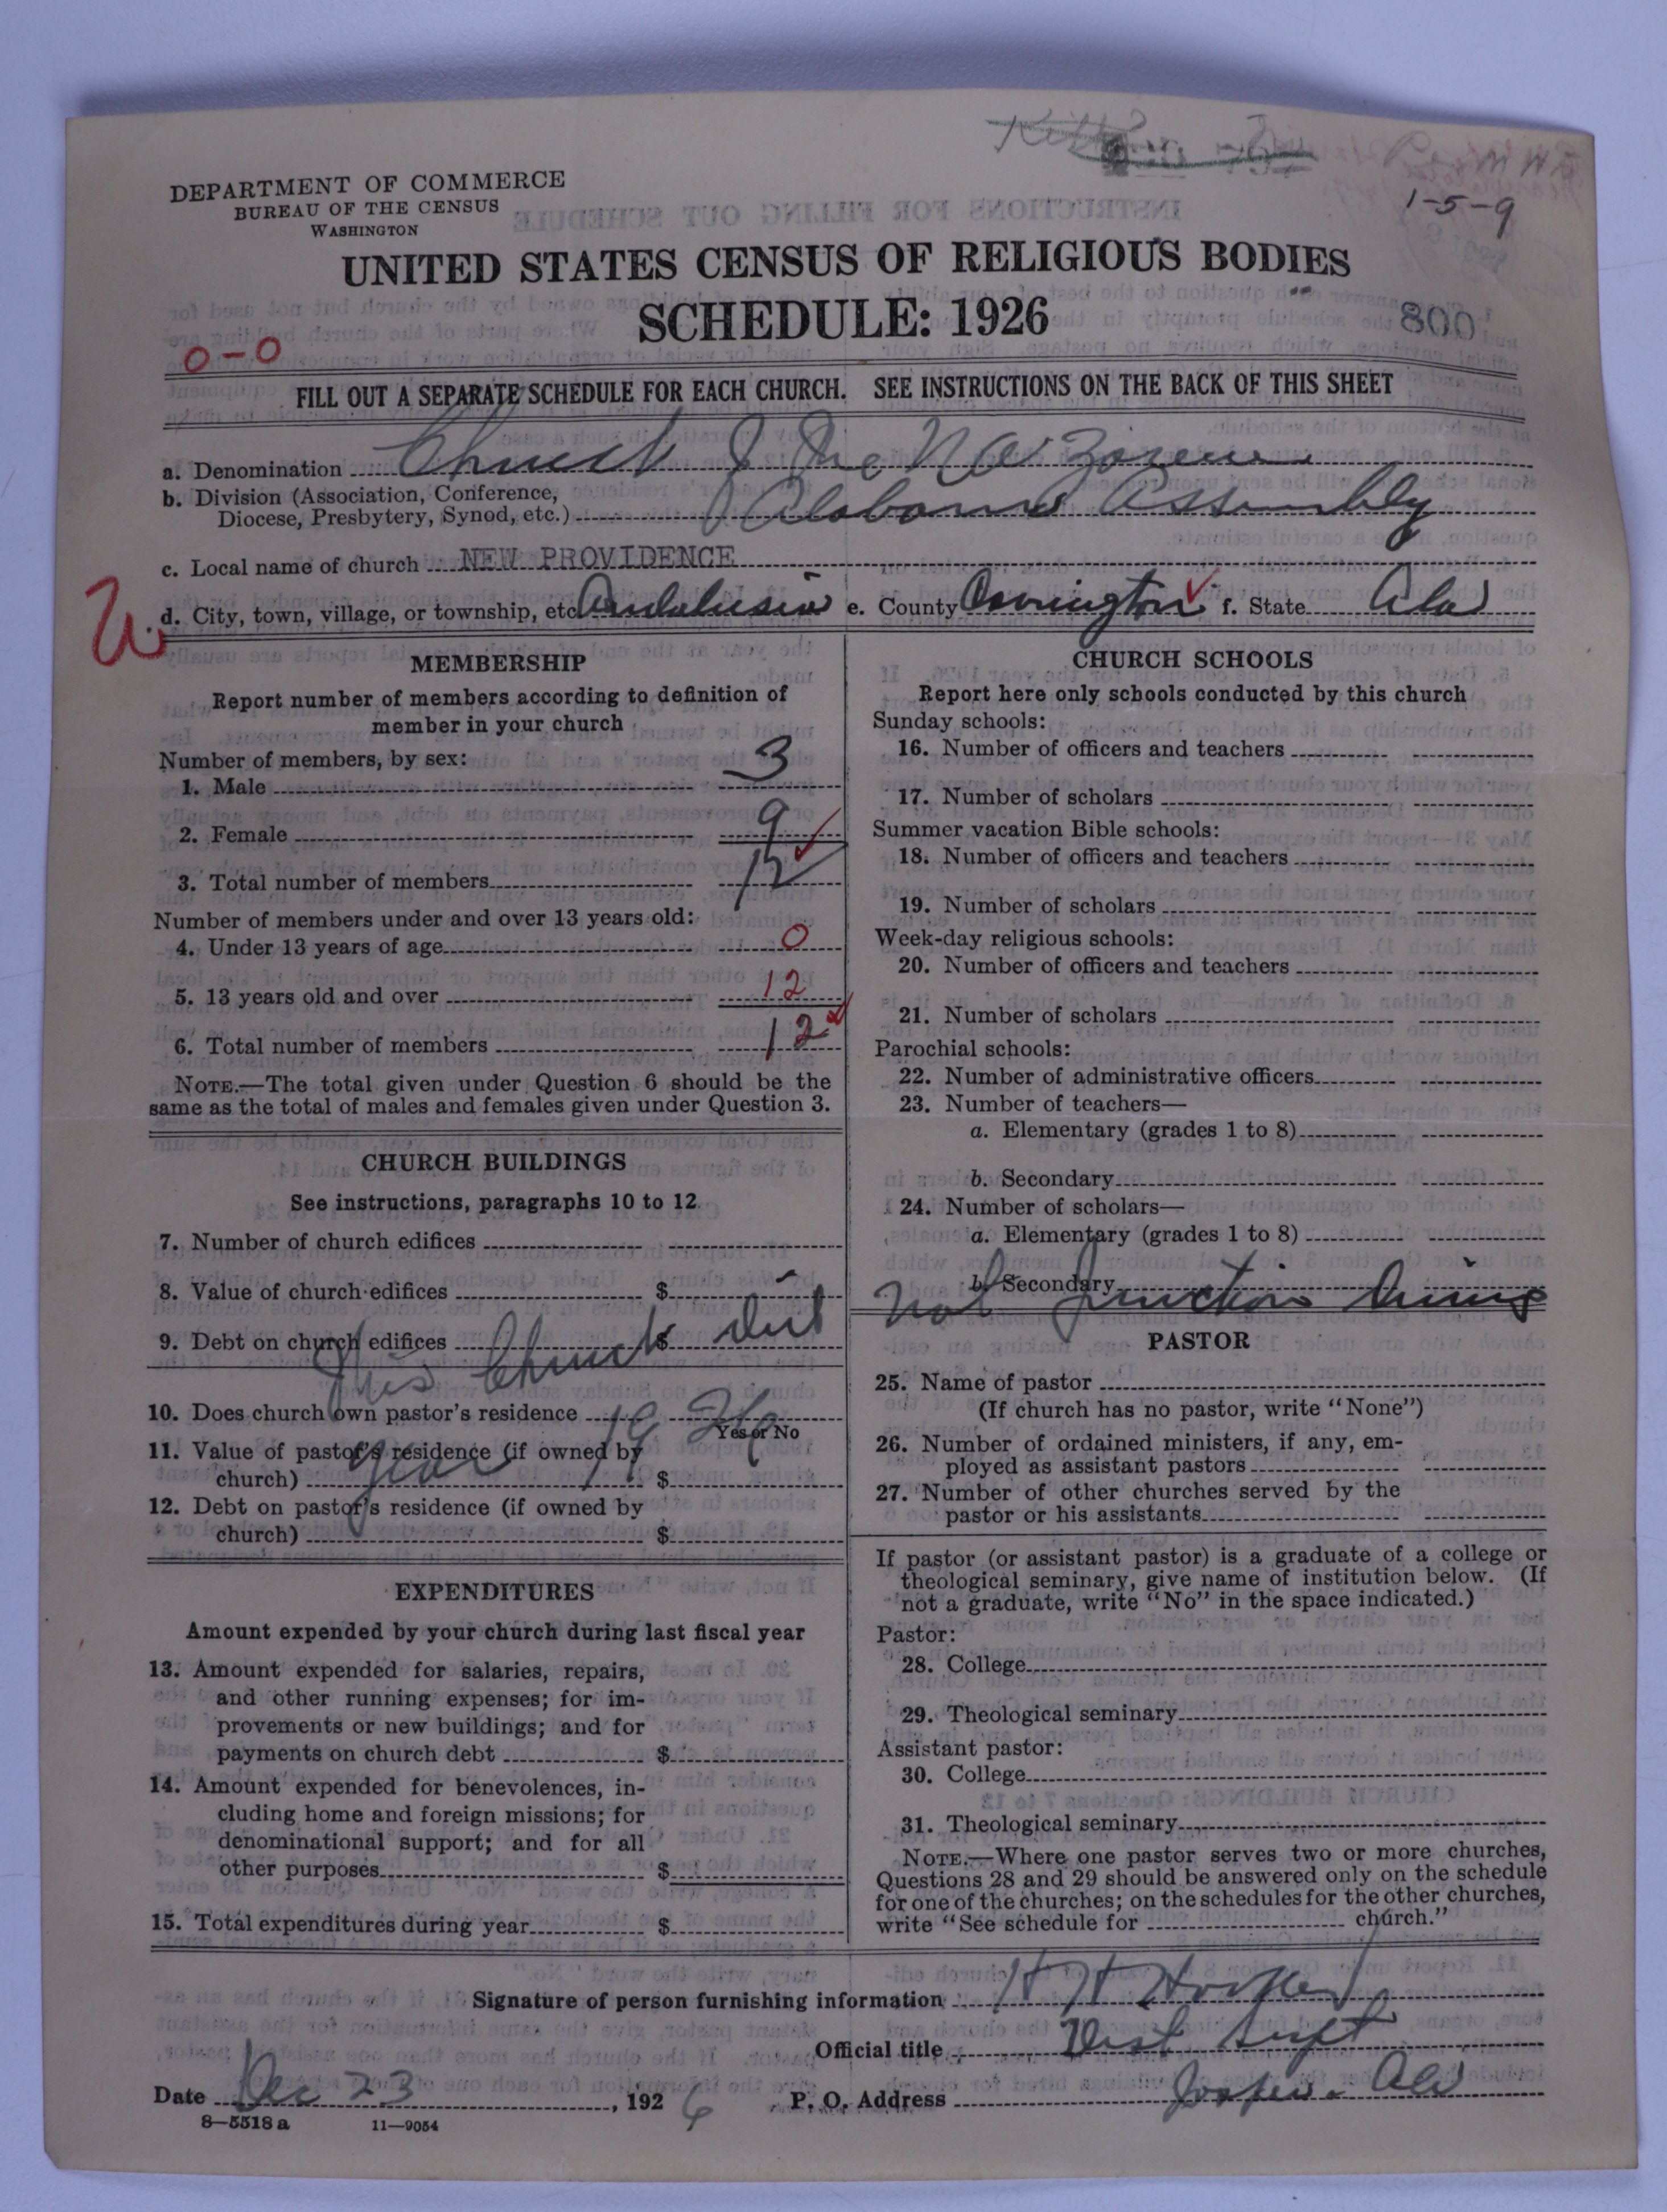 DEPARTMENT OF COMMERCE
BUREAU OF THE CENSUS
WASHINGTON
1-5-9
UNITED STATES CENSUS OF RELIGIOUS BODIES
SCHEDULE: 1926
800
0-0
FILL OUT A SEPARATE SCHEDULE FOR EACH CHURCH. SEE INSTRUCTIONS ON THE BACK OF THIS SHEET
a. Denomination Church of the Nazarene
b. Division (Association, Conference,
Diocese, Presbytery, Synod, etc.) Alabama Assembly
c. Local name of church NEW PROVIDENCE
d. City, town, village, or township, etc. Andalusia e. County Covington f. State Ala
MEMBERSHIP
Report number of members according to definition of
member in your church
Number of members, by sex:
1. Male 3
2. Female 9
3. Total number of members 12
Number of members under and over 13 years old:
4. Under 13 years of age 0
5. 13 years old and over 12
6. Total number of members 12
NOTE.—The total given under Question 6 should be the
same as the total of males and females given under Question 3.
CHURCH BUILDINGS
See instructions, paragraphs 10 to 12
7. Number of church edifices
8. Value of church edifices $
9. Debt on church edifices $
This Church did
10. Does church own pastor's residence
Yes or No
11. Value of pastor's residence (if owned by
church) $
year 1926
12. Debt on pastor's residence (if owned by
church) $
EXPENDITURES
Amount expended by your church during last fiscal year
13. Amount expended for salaries, repairs,
and other running expenses; for im-
provements or new buildings; and for
payments on church debt $
14. Amount expended for benevolences, in-
cluding home and foreign missions; for
denominational support; and for all
other purposes $
15. Total expenditures during year $
CHURCH SCHOOLS
Report here only schools conducted by this church
Sunday schools:
16. Number of officers and teachers
17. Number of scholars
Summer vacation Bible schools:
18. Number of officers and teachers
19. Number of scholars
Week-day religious schools:
20. Number of officers and teachers
21. Number of scholars
Parochial schools:
22. Number of administrative officers
23. Number of teachers—
a. Elementary (grades 1 to 8)
b. Secondary
24. Number of scholars—
a. Elementary (grades 1 to 8)
b. Secondary
not function during
PASTOR
25. Name of pastor
(If church has no pastor, write "None")
26. Number of ordained ministers, if any, em-
ployed as assistant pastors
27. Number of other churches served by the
pastor or his assistants
If pastor (or assistant pastor) is a graduate of a college or
theological seminary, give name of institution below. (If
not a graduate, write "No" in the space indicated.)
Pastor:
28. College
29. Theological seminary
Assistant pastor:
30. College
31. Theological seminary
NOTE.—Where one pastor serves two or more churches,
Questions 28 and 29 should be answered only on the schedule
for one of the churches; on the schedules for the other churches,
write "See schedule for church."
Signature of person furnishing information H H Hooker
Official title Dist Supt
Date Dec 23, 1926 P. O. Address Jasper Ala
8-5518 a 11-9054